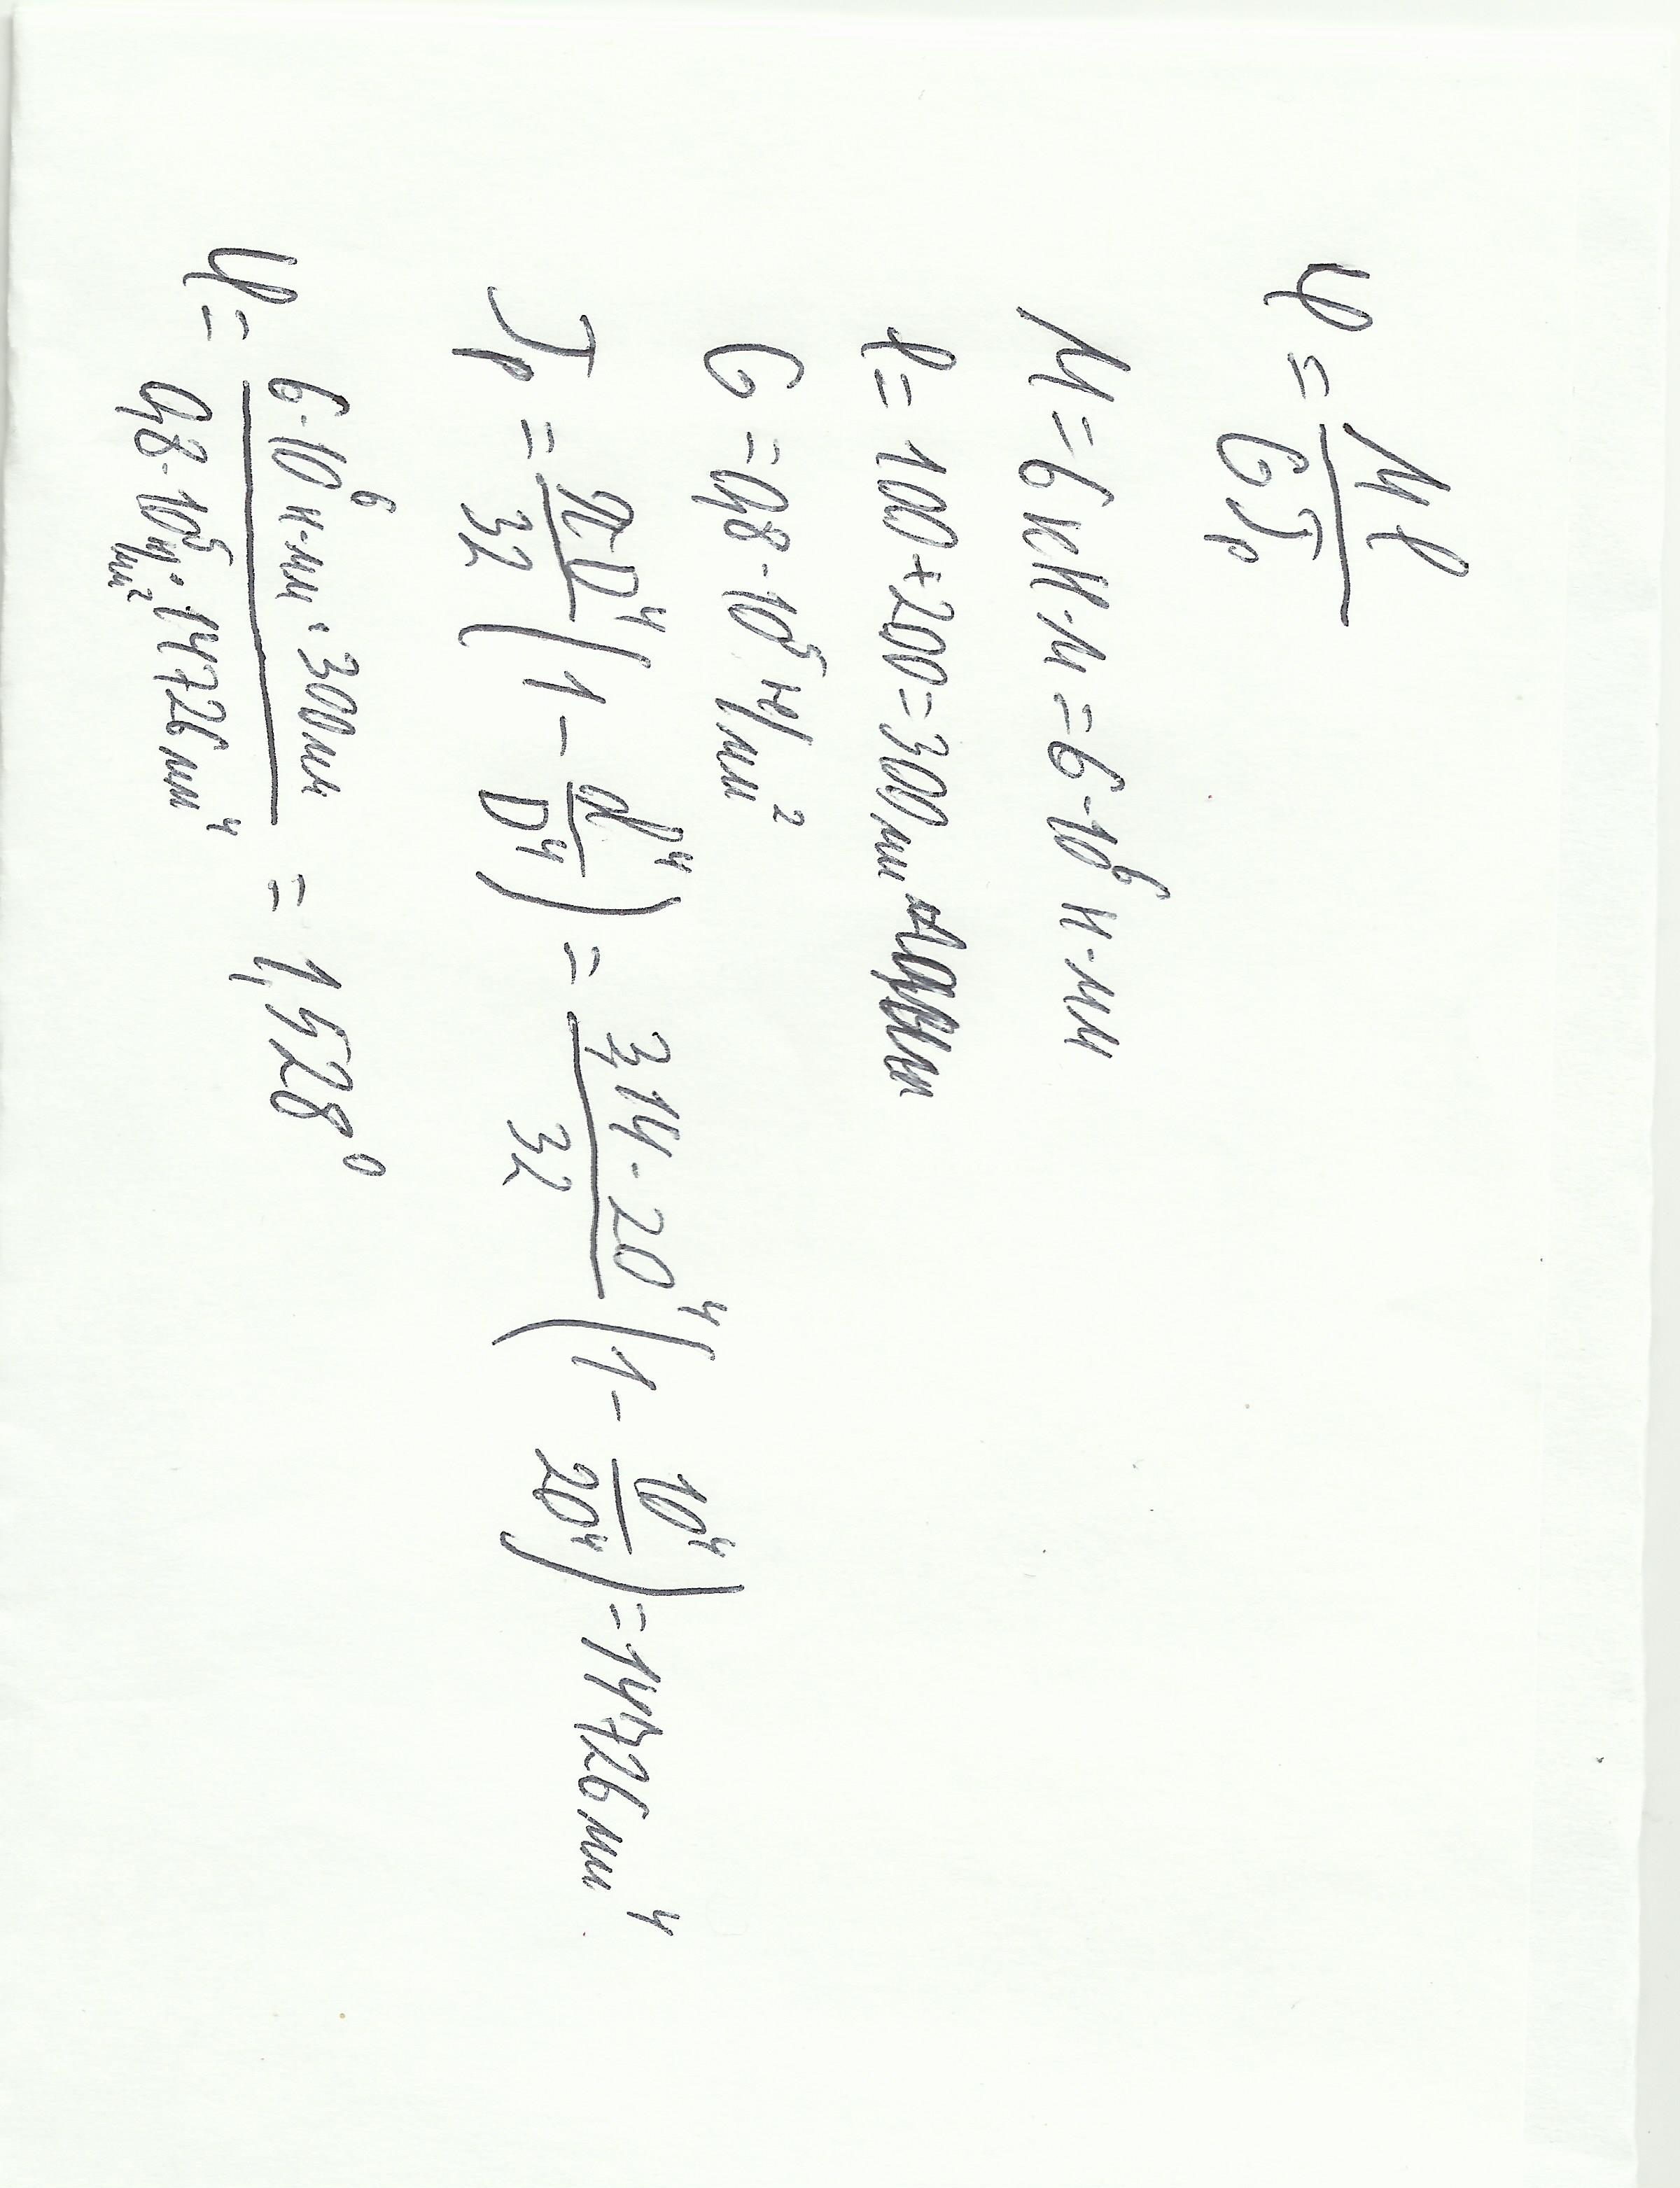 φ = Ml / GJp
M = 6 кН·м = 6·10⁶ Н·мм
l = 100 + 200 = 300 мм
G = 0,8·10⁵ Н/мм²
Jp = π·D⁴/32 (1 - d⁴/D⁴) = 3,14·20⁴/32 (1 - 10⁴/20⁴) = 14726 мм⁴
φ = 6·10⁶ Н·мм · 300 мм / 0,8·10⁵ Н/мм² · 14726 мм⁴ = 1,528⁰